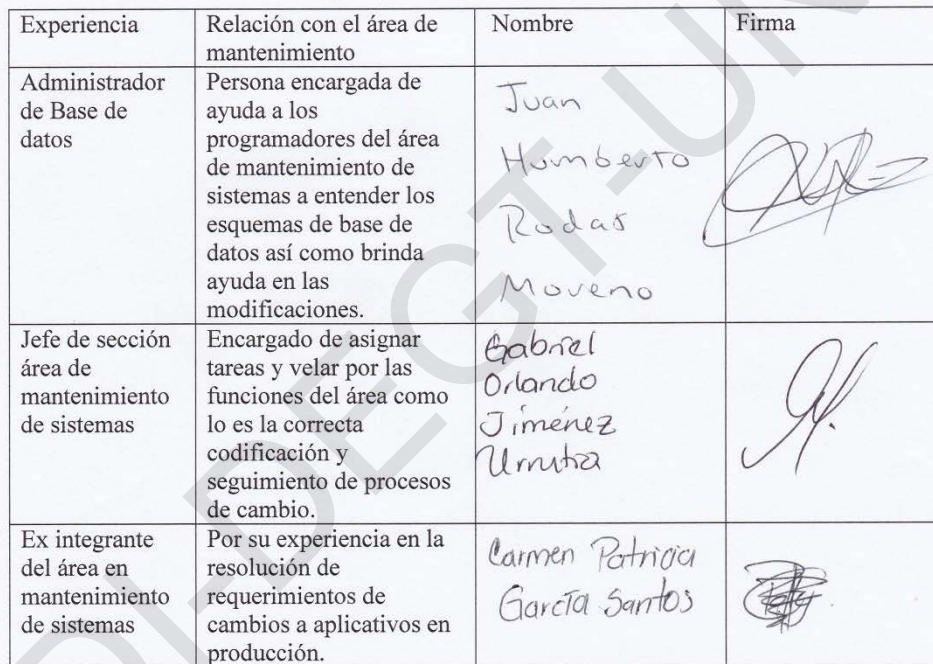 Experiencia
Relación con el área de
mantenimiento
Nombre
Firma
Administrador
de Base de
datos
Persona encargada de
ayuda a los
programadores del área
de mantenimiento de
sistemas a entender los
esquemas de base de
datos así como brinda
ayuda en las
modificaciones.
Juan
Humberto
Rodas
Moreno
Jefe de sección
área de
mantenimiento
de sistemas
Encargado de asignar
tareas y velar por las
funciones del área como
lo es la correcta
codificación y
seguimiento de procesos
de cambio.
Gabriel
Orlando
Jiménez
Urrutia
Ex integrante
del área en
mantenimiento
de sistemas
Por su experiencia en la
resolución de
requerimientos de
cambios a aplicativos en
producción.
Carmen Patricia
García Santos